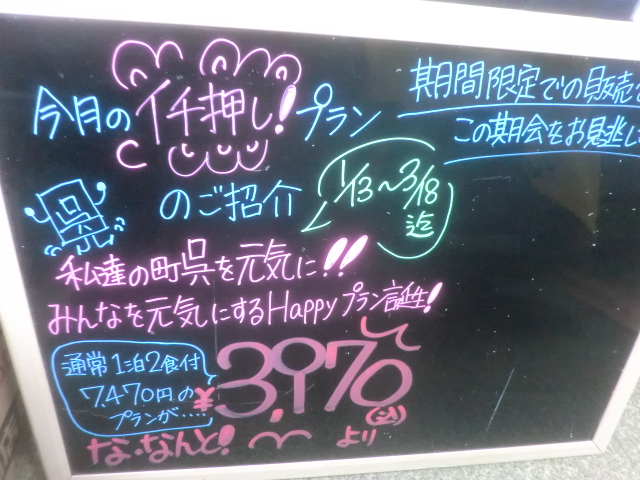 今月のイチ押し!プラン
のご紹介
期間限定での販売
この期会をお見逃し
1/13~3/18
迄
呉
私達の町呉を元気に!!
みんなを元気にするHappyプラン誕生!
通常1泊2食付
7,470円の
プランが....
な・なんと!
¥3,970
(込)
より